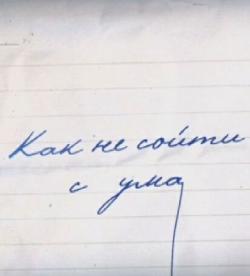 Как не сойти
с ума